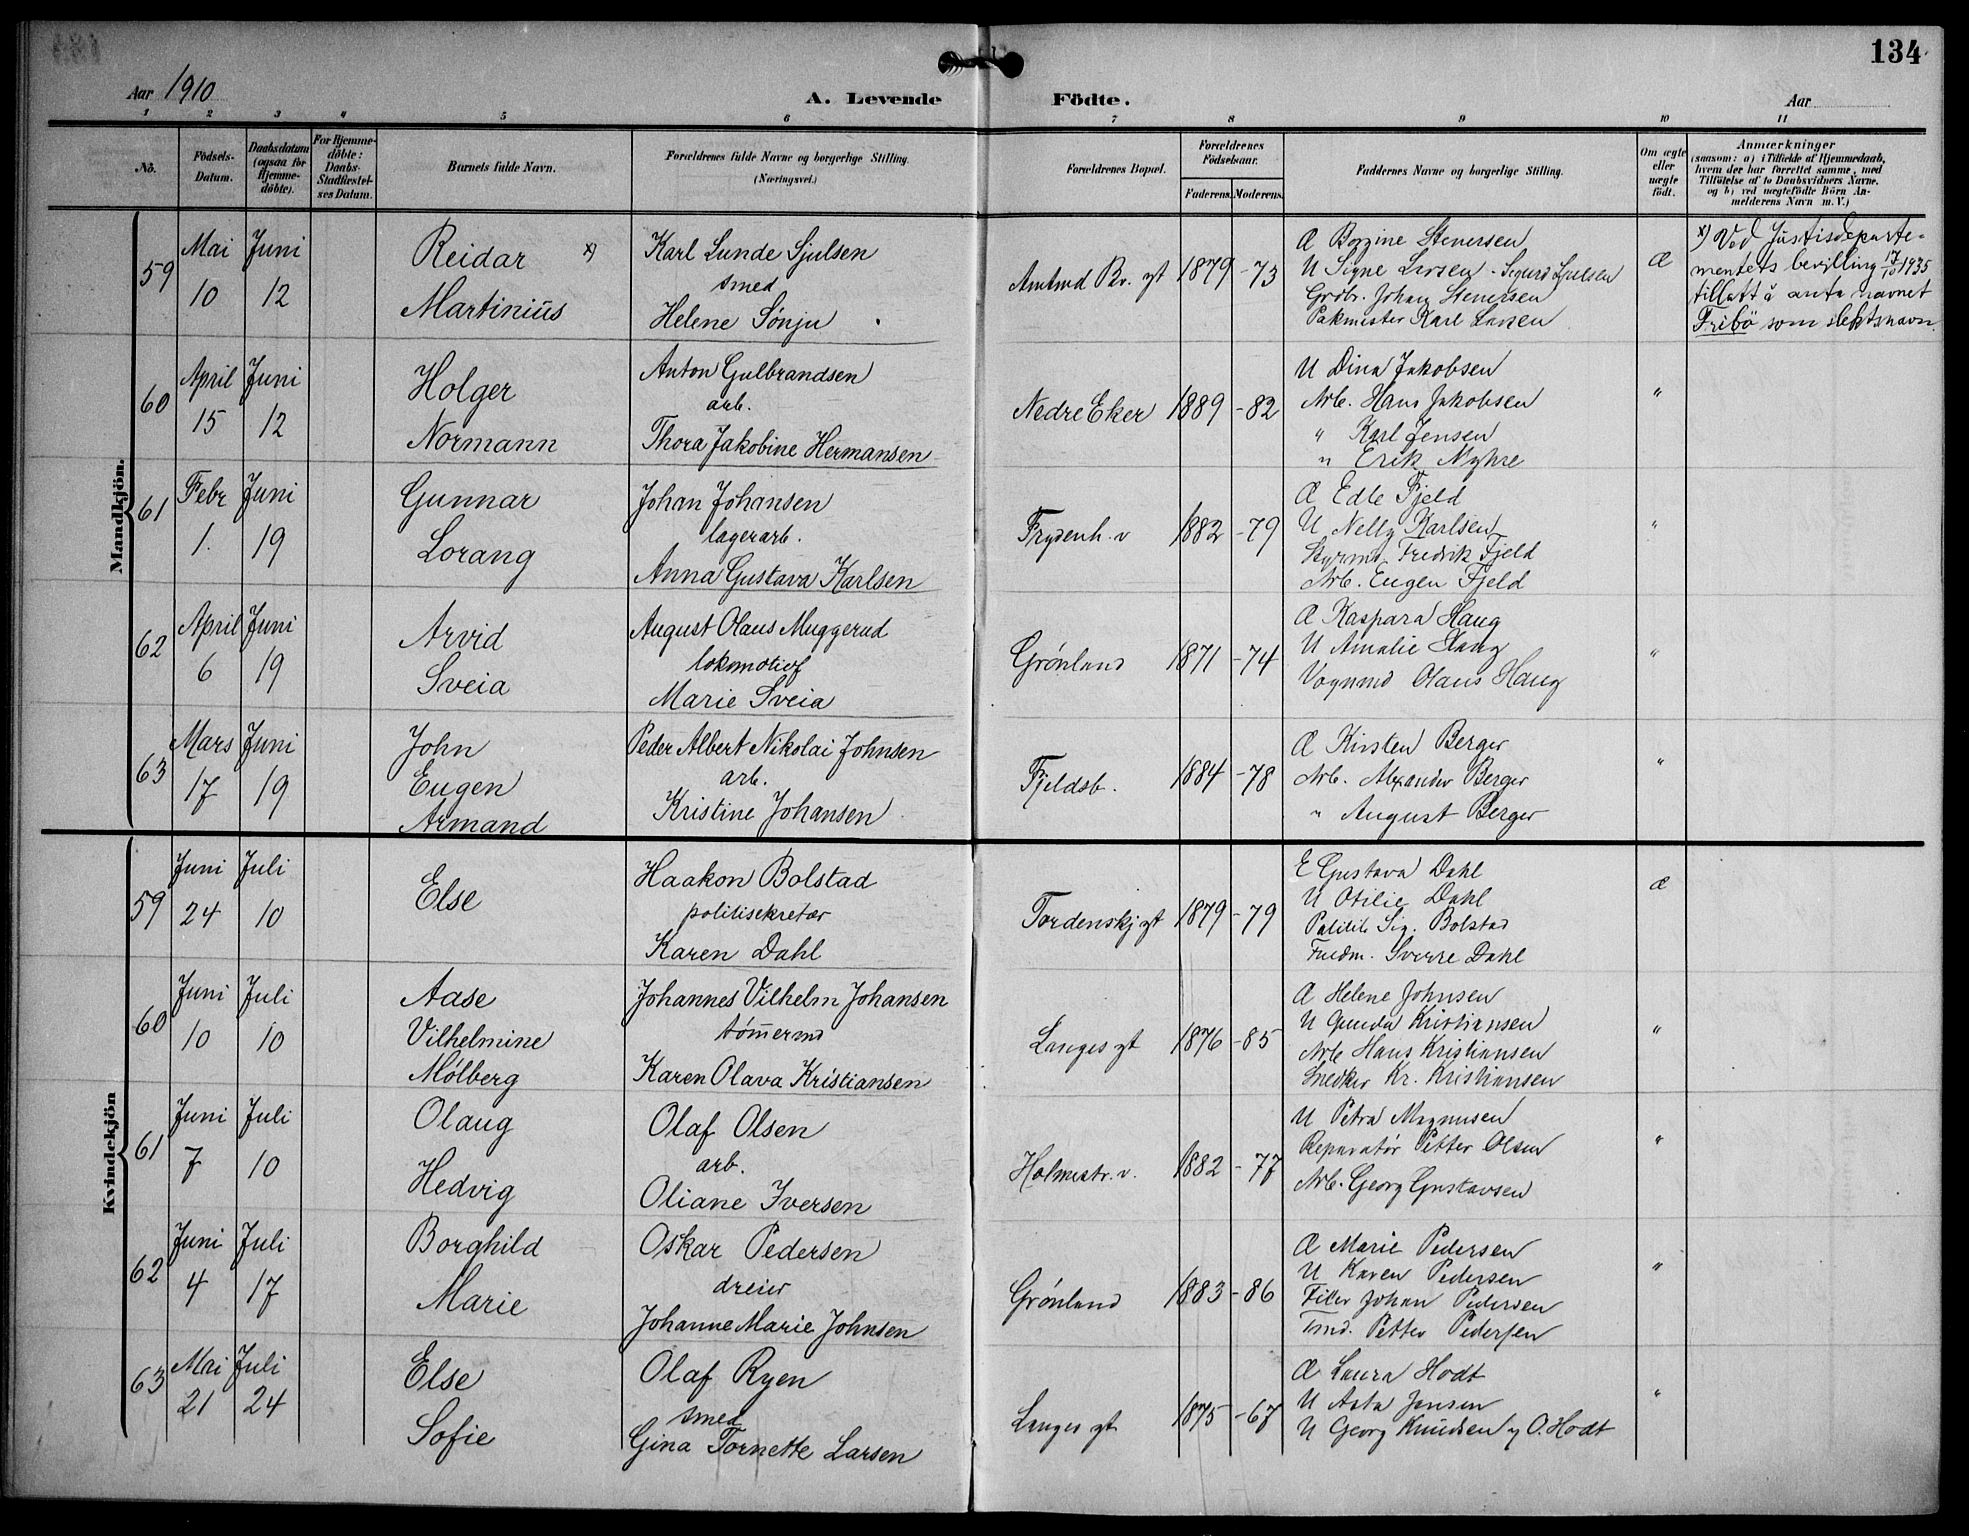 134
Aar 1910
A. Levende Födte.
Aar
1 2 3 4 5 6 7 8 9 10 11
No.
Födsels-Datum.
Daabsdatum (ogsaa for Hjemmedöbte).
For Hjemmedöbte: Daabs-Stadfæstelses Datum.
Barnets fulde Navn.
Forældrenes fulde Navne og borgerlige Stilling. (Næringsvei.)
Forældrenes Bopæl.
Forældrenes Födselsaar.
Faderens. Moderens.
Faddernes Navne og borgerlige Stilling.
Om ægte eller uægte födt.
Anmærkninger
(saasom: a) i Tilfælde af Hjemmedaab,
hvem der har forrettet samme, med
Tilföielse af to Daabsvidners Navne,
og b) ved uægtefödte Börn An-
melderens Navn m. V.)
Mandkjön.
59
Mai 10
Juni 12
Reidar x)
Martinius
Karl Lunde Sjulsen
smed
Helene Sönju
Amtmd Br. gt
1879 - 73
Æ Borgine Stenersen
U Signe Larsen - Sigurd Sjulsen
Grdbr. Johan Stenersen
Pakmester Karl Larsen
Æ
x) Ved Justisdeparte-
mentets bevilling 17/10 1935
tillatt å anta navnet
Fribö som slektsnavn.
60
April 15
Juni 12
Holger
Normann
Anton Gulbrandsen
arb.
Thora Jakobine Hermansen
Nedre Eker
1889 - 82
U Dina Jakobsen
Arb. Hans Jakobsen
" Karl Jensen
" Erik Myhre
"
61
Febr 1.
Juni 19
Gunnar
Lorang
Johan Johansen
lagerarb.
Anna Gustava Karlsen
Frydenh. v
1882 - 79
Æ Edle Fjeld
U Nelly Karlsen
Styrmd Fredrik Fjeld
Arb. Eugen Fjeld
"
62
April 6
Juni 19
Arvid
Sveia
August Olaus Muggerud
lokomotivf
Marie Sveia
Grönland
1871 - 74
Æ Kaspara Haug
U Amalie Haug
Vognmd Olaus Haug
"
63
Mars 17
Juni 19
John
Eugen
Armand
Peder Albert Nikolai Johnsen
arb.
Kristine Johansen
Fjeldsb.
1884 - 78
Æ Kirsten Berger
Arb. Alexander Berger
" August Berger
"
Kvindekjön
59
Juni 24
Juli 10
Else
Haakon Bolstad
politisekretær
Karen Dahl
Tordenskj gt
1879 - 79
E Gustava Dahl
U Otilie Dahl
Sig. Bolstad
Fuldm. Sverre Dahl
Æ
60
Juni 10
Juli 10
Aase
Vilhelmine
Mölberg
Johannes Vilhelm Johansen
tömermd
Karen Olava Kristiansen
Langes gt
1876 - 85
Æ Helene Johnsen
U Gunda Kristiansen
Arb Hans Kristiansen
Snedker Kr. Kristiansen
"
61
Juni 7
Juli 10
Olaug
Hedvig
Olaf Olsen
arb.
Oliane Iversen
Holmestr. v.
1882 - 77
U Petra Magnusen
Reparatør Petter Olsen
Arb. Georg Gustavsen
"
62
Juni 4
Juli 17
Borghild
Marie
Oskar Pedersen
dreier
Johanne Marie Johnsen
Grönland
1883 - 86
Æ Marie Pedersen
U Karen Pedersen
Filer Johan Pedersen
Tmd. Petter Pedersen
"
63
Mai 21
Juli 24
Else
Sofie
Olaf Ryen
smed
Gina Tornette Larsen
Langes gt
1875 - 67
Æ Laura Hodt
U Asta Jensen
U Georg Knudsen og O. Hodt
"